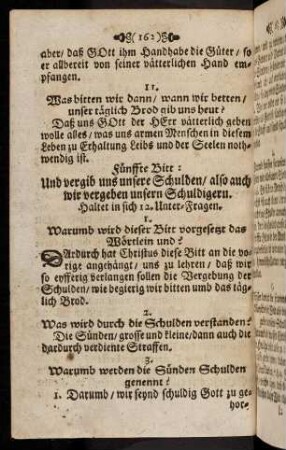 (162)
aber, daß GOtt ihm Handhabe die Güter/ so
er allbereit von seiner vätterlichen Hand em-
pfangen.
11.
Was bitten wir dann/ wann wir betten/
unser täglich Brod gib uns heut?
Daß uns GOtt der HErr vätterlich geben
wolle alles/ was uns armen Menschen in diesem
Leben zu Erhaltung Leibs und der Seelen noth-
wendig ist.
Fünffte Bitt:
Und vergib uns unsere Schulden/ also auch
wir vergeben unsern Schuldigern.
Haltet in sich 12. Unter-Fragen.
1.
Warumb wird dieser Bitt vorgesetzt das
Wörtlein und?
DArdurch hat Christus diese Bitt an die vo-
rige angehängt/ uns zu lehren/ daß wir
so eyfferig verlangen sollen die Vergebung der
Schulden/ wie begierig wir bitten umb das täg-
lich Brod.
2.
Was wird durch die Schulden verstanden?
Die Sünden/ grosse und kleine/ dann auch die
dardurch verdiente Straffen.
3.
Warumb werden die Sünden Schulden
genennt?
1. Darumb/ wir seynd schuldig Gott zu ge-
hor-